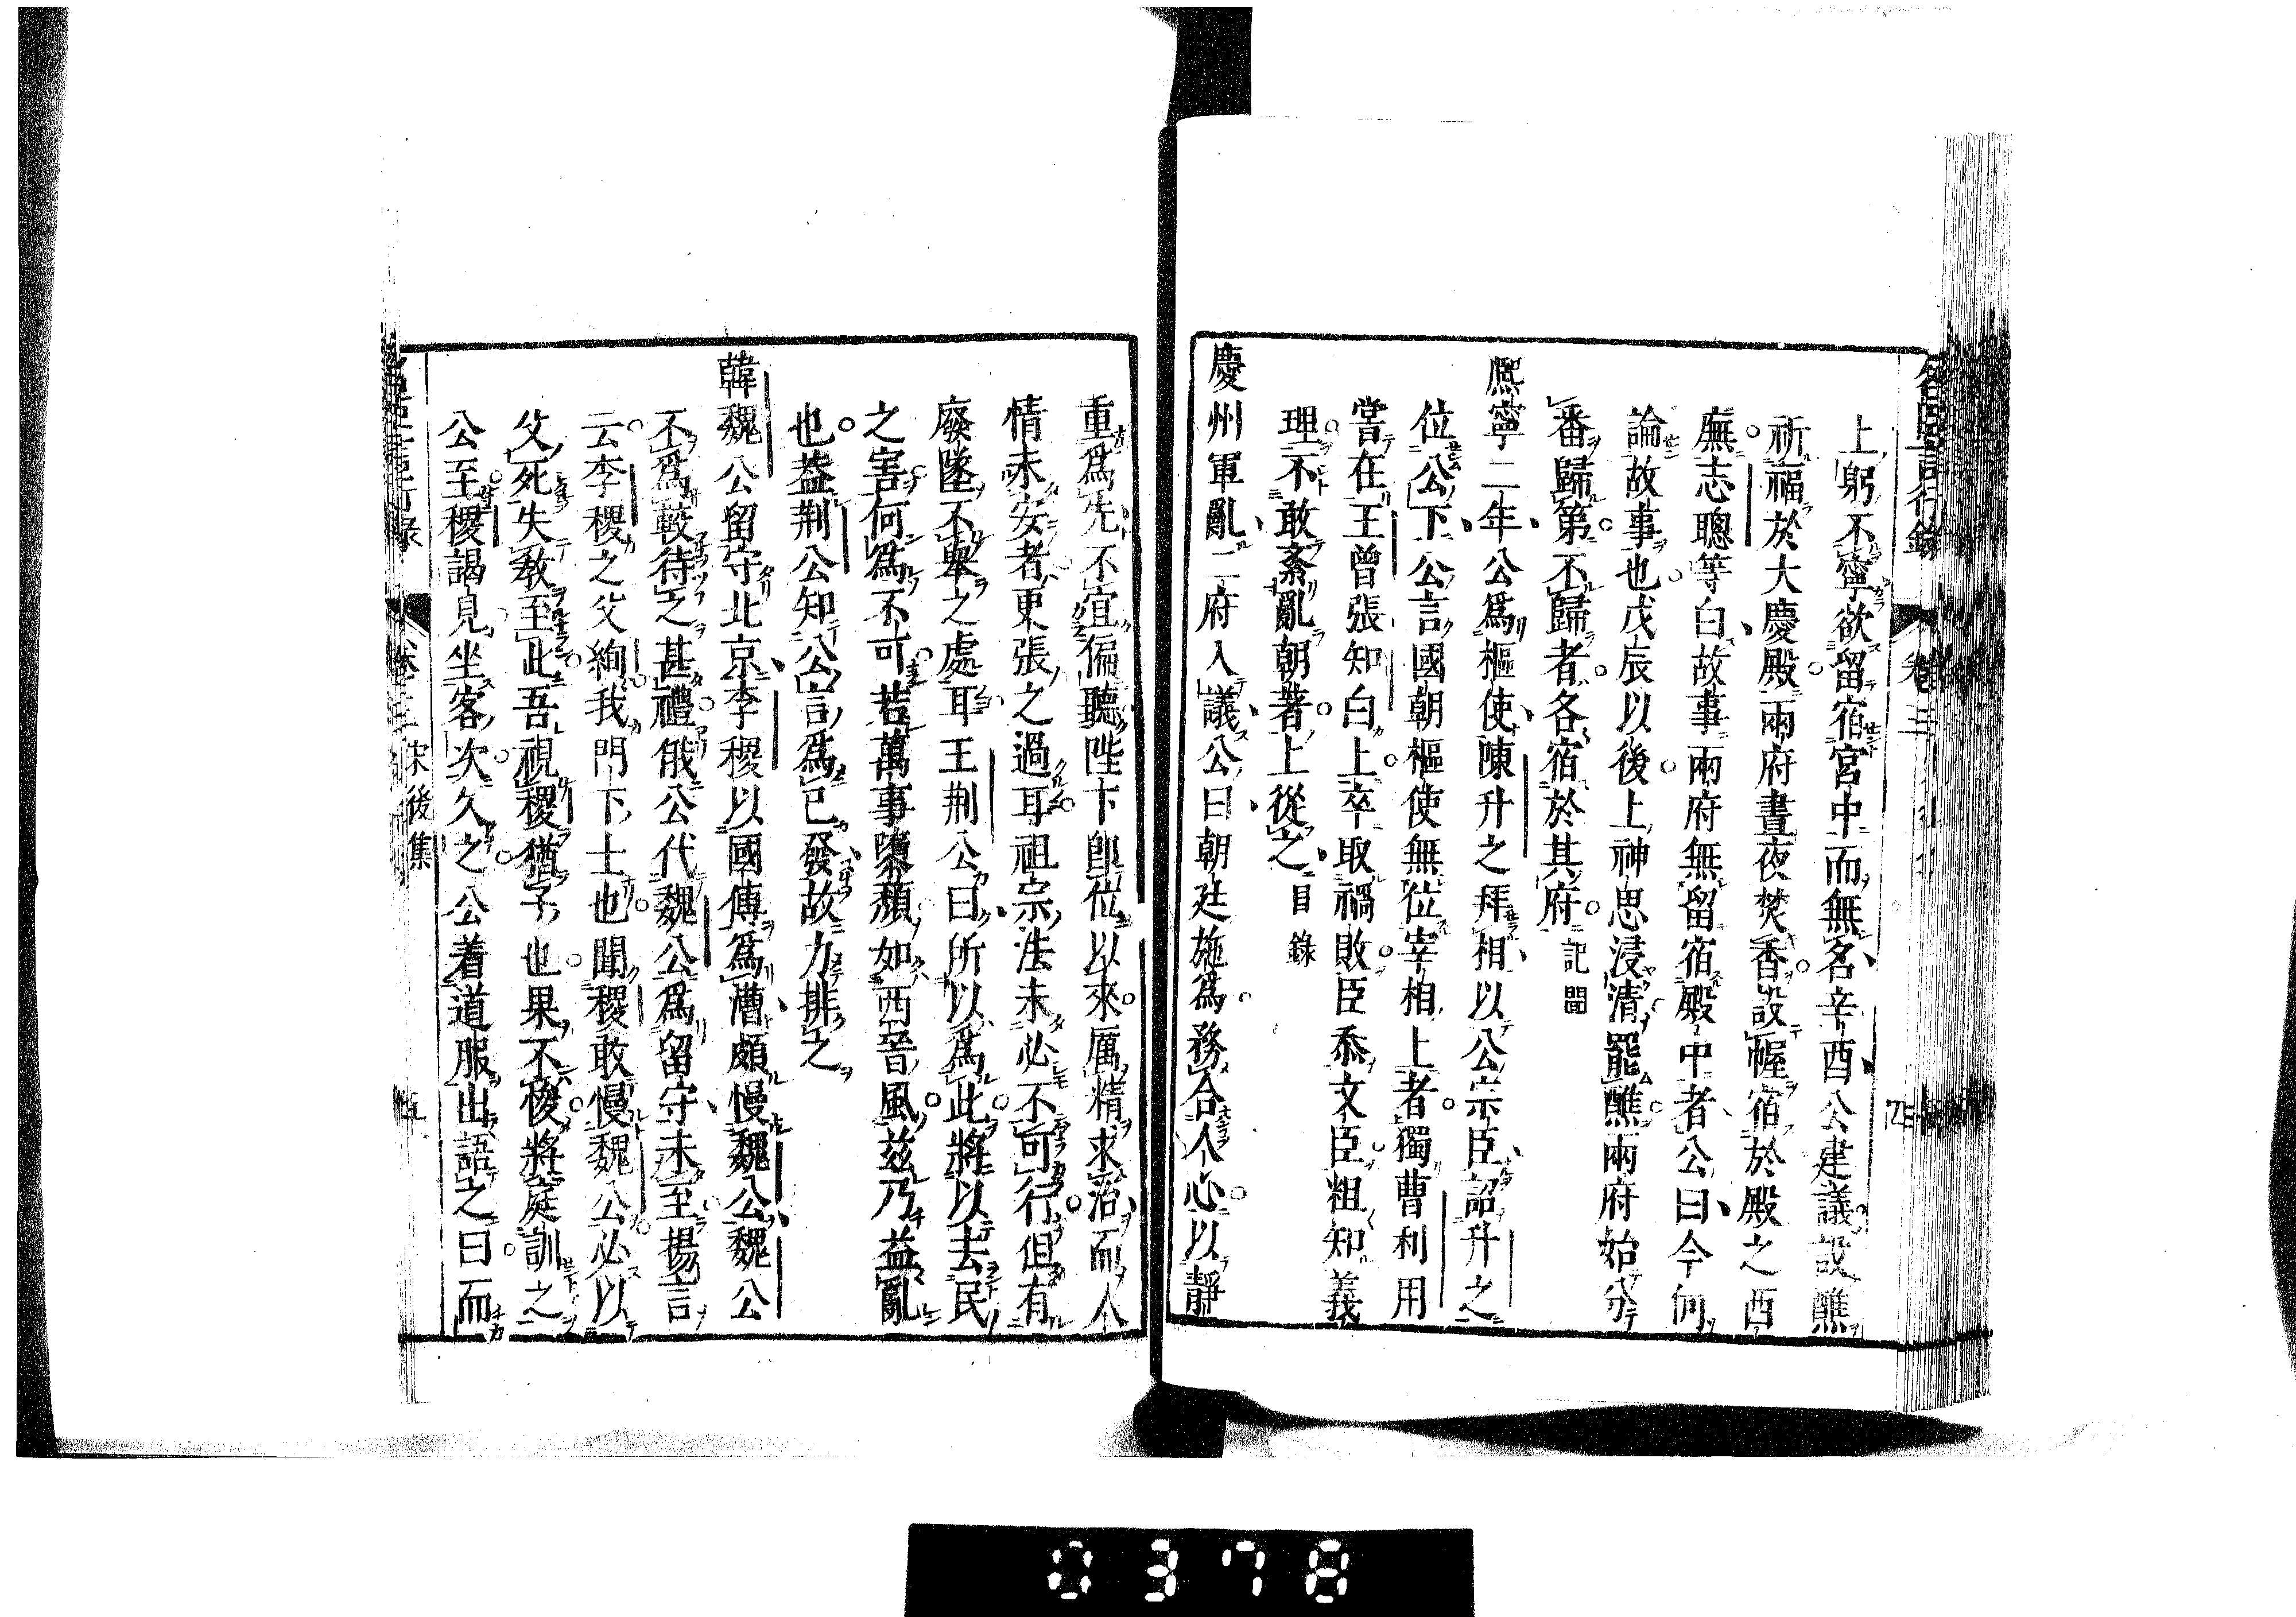 名臣言行錄
上躬不寧欲留宿宮中而無名辛酉公建議設醮
祈福於大慶殿兩府晝夜焚香設幄宿於殿之西
廡志聰等白故事兩府無留宿殿中者公曰今何
論故事也戊辰以後上神思浸清罷醮兩府始分
番歸第不歸者各宿於其府記聞
熈寧二年公爲樞使陳升之拜相以公宗臣詔升之
位公下公言國朝樞使無位宰相上者獨曹利用
嘗在王曾張知白上卒取禍敗臣忝文臣粗知義
理不敢紊亂朝著上從之目錄
慶州軍亂二府入議公曰朝廷施爲務合人心以靜
重爲先不宜偏聽陛下卽位以來厲精求治而人
情未安者更張之過耳祖宗法未必不可行但有
廢墜不舉之處耳王荆公曰所以爲此將以去民
之害何爲不可若萬事隳頹如西晉風兹乃益亂
也益荆公知公言爲已發故力排之
韓魏公留守北京李稷以國傅爲漕頗慢魏公魏公
不爲較待之甚禮俄公代魏公爲留守未至揚言
云李稷之父絢我門下士也聞稷敢慢魏公必以
父死失敎至此吾視稷猶子也果不悛將庭訓之
公至稷謁見坐客次久之公着道服出語之曰而
宋後集
0378